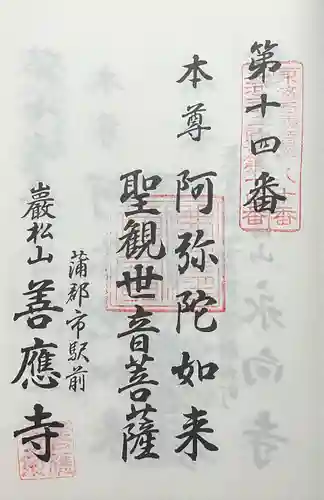 第十四番
本尊 阿弥陀如来
聖観世音菩薩
蒲郡市駅前
巖松山 善應寺